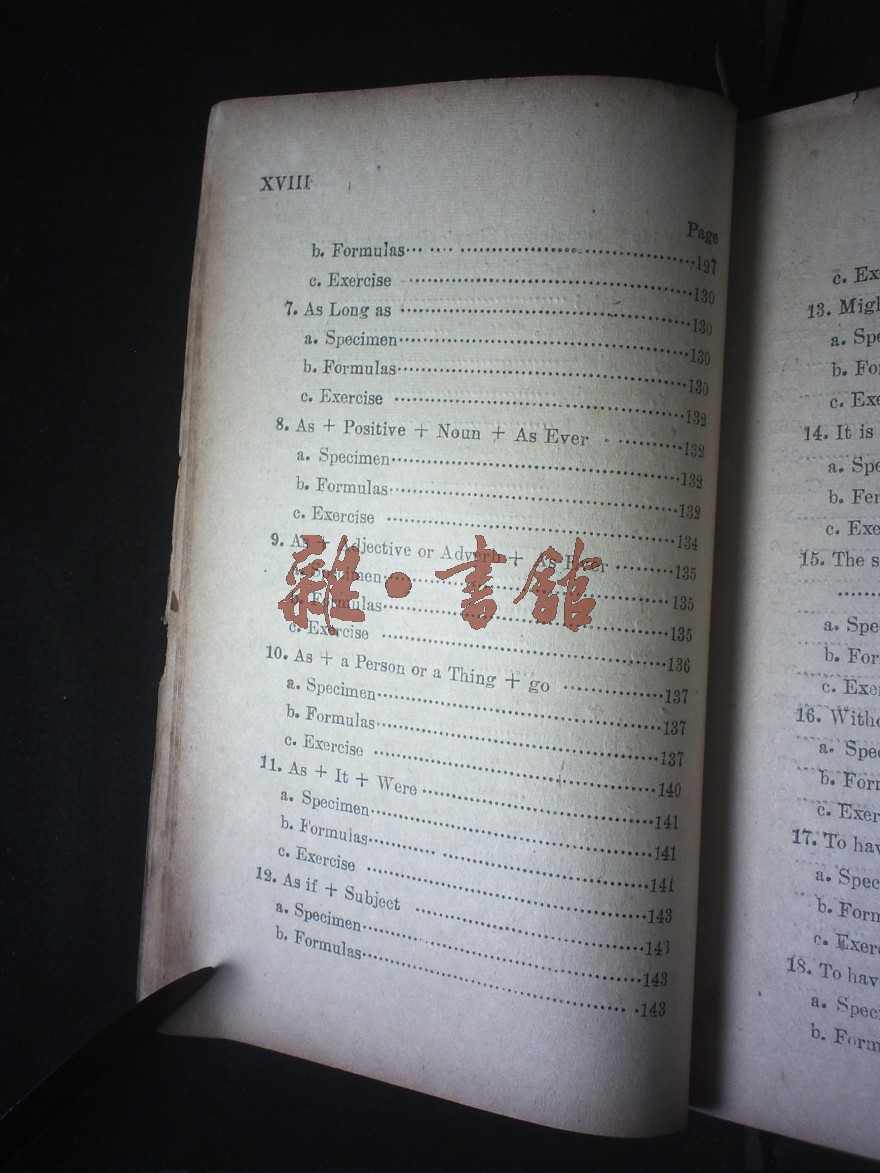 XVIII
Page
b. Formulas 127
c. Exercise 130
7. As Long as 130
a. Specimen 130
b. Formulas 130
c. Exercise 132
8. As + Positive + Noun + As Ever 132
a. Specimen 132
b. Formulas 132
c. Exercise 134
9. As + Adjective or Adverb + As Ever 135
a. Specimen 135
b. Formulas 135
c. Exercise 136
10. As + a Person or a Thing + go 137
a. Specimen 137
b. Formulas 137
c. Exercise 140
11. As + It + Were 141
a. Specimen 141
b. Formulas 141
c. Exercise 143
12. As if + Subject 143
a. Specimen 143
b. Formulas 143
雜·書館
c. Ex
13. Migh
a. Spe
b. Fo
c. Exe
14. It is
a. Spe
b. Fer
c. Exe
15. The s
a. Spe
b. For
c. Exe
16. Witho
a. Spe
b. Form
c. Exer
17. To hav
a. Spec
b. Form
c. Exerc
18. To hav
a. Speci
b. Form